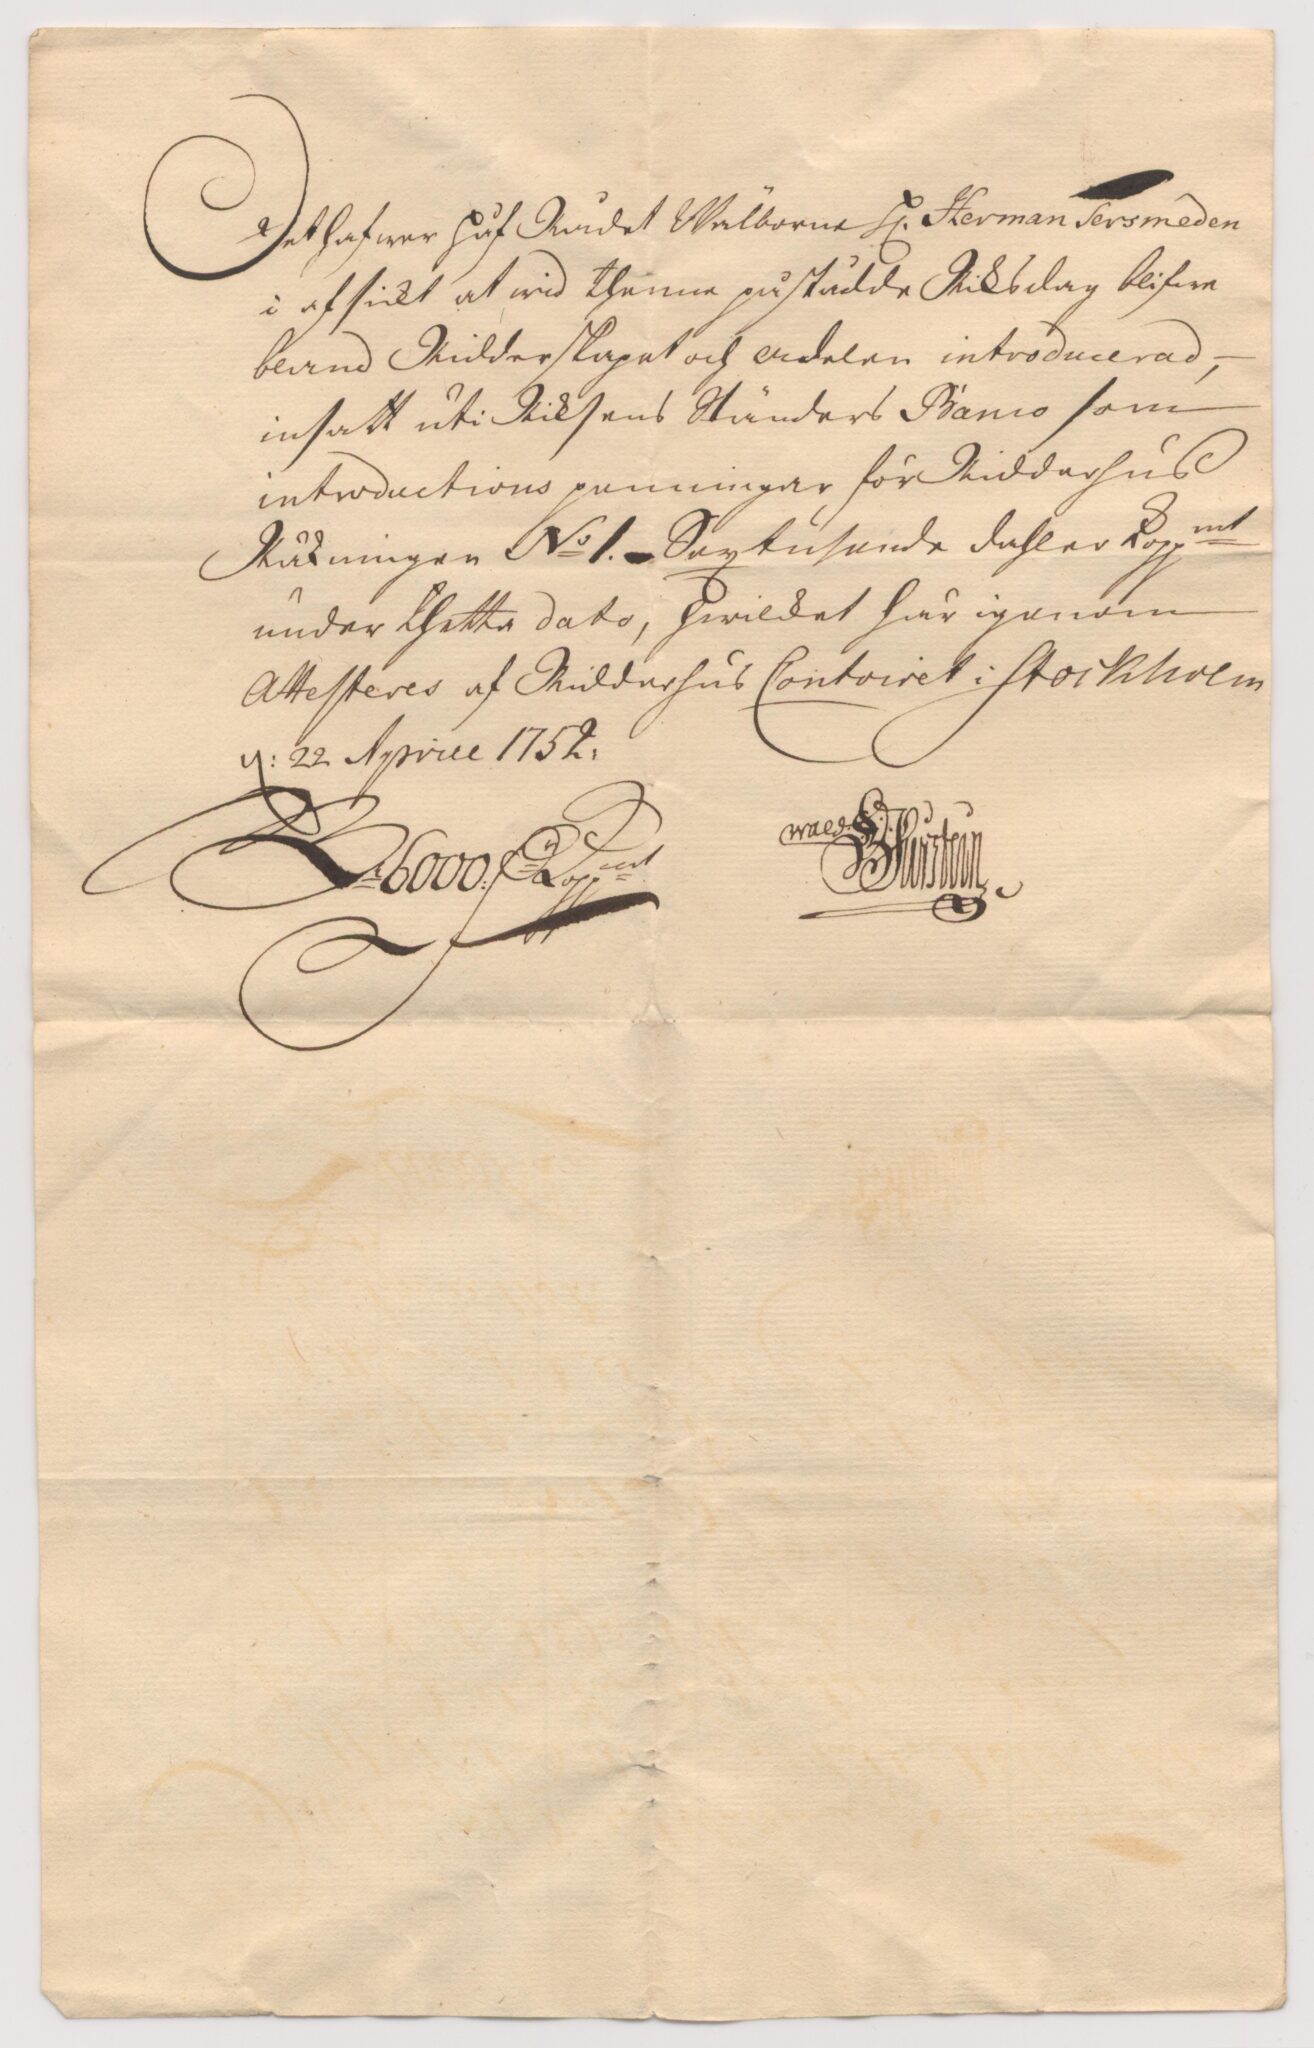 Det hafwer Hof Rådet Wälborne H. Herman Tersmeden
i afsickt at wid thenne påstådde Riksdag blifwa
bland Ridderskapet och adelen introducerad,
insatt uti Riksens Ständers Banco som
introductions penningar för Ridderhus
Räkningen No 1. Sextusende dahler Koppmt
under thetta dato, hwilcket här igenom
Attesteres af Ridderhus Contoiret i Stockholm
d: 22 Aprill 1752:
6000: Koppmt